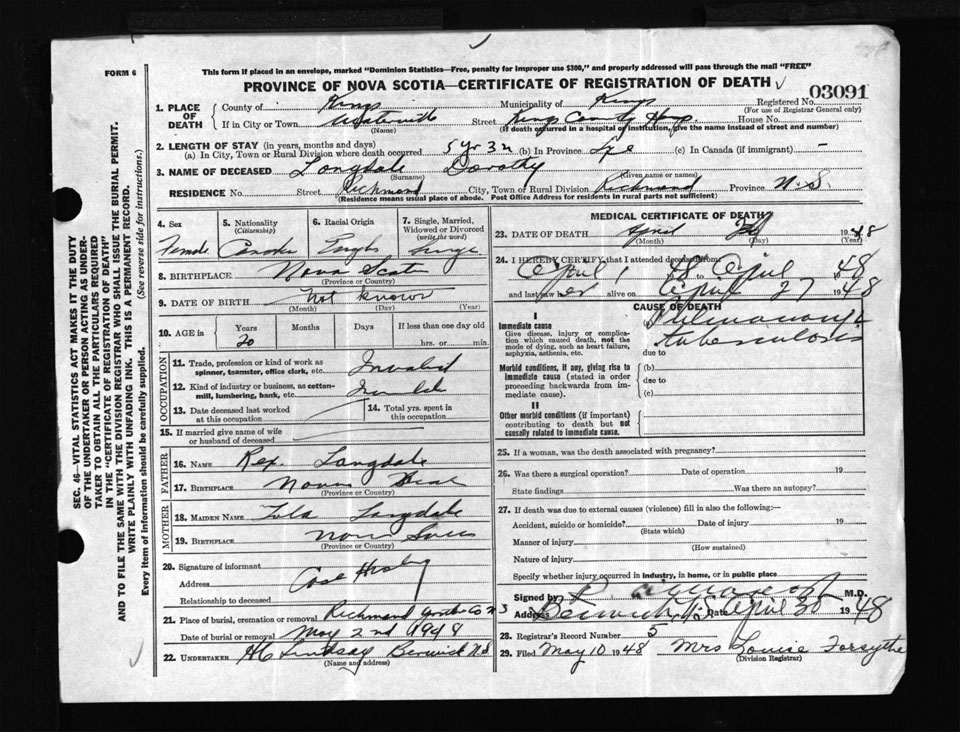 FORM 6
This form if placed in an envelope, marked "Dominion Statistics—Free, penalty for improper use $300," and properly addressed will pass through the mail "FREE"
PROVINCE OF NOVA SCOTIA—CERTIFICATE OF REGISTRATION OF DEATH
03091
1. PLACE OF DEATH
County of Kings Municipality of Kings Registered No.
(For use of Registrar General only)
If in City or Town Street Kings County Hosp. House No.
(Name) (If death occurred in a hospital or institution, give the name instead of street and number)
2. LENGTH OF STAY (in years, months and days)
(a) In City, Town or Rural Division where death occurred 5 yr 3 (b) In Province Life (c) In Canada (if immigrant) —
3. NAME OF DECEASED Langdale Dorothy
(Surname) (Given name or names)
RESIDENCE No. Street Richmond City, Town or Rural Division Richmond Province N.S.
(Residence means usual place of abode. Post Office Address for residents in rural parts not sufficient)
4. Sex
Female
5. Nationality (Citizenship)
6. Racial Origin
7. Single, Married, Widowed or Divorced (write the word)
Single
8. BIRTHPLACE Nova Scotia
(Province or Country)
9. DATE OF BIRTH Not known
(Month) (Day) (Year)
10. AGE in
Years Months Days If less than one day old
20
hrs. or min.
OCCUPATION
11. Trade, profession or kind of work as spinner, teamster, office clerk, etc. Invalid
12. Kind of industry or business, as cotton-mill, lumbering, bank, etc.
13. Date deceased last worked at this occupation
14. Total yrs. spent in this occupation
15. If married give name of wife or husband of deceased
FATHER
16. NAME Rex. Langdale
17. BIRTHPLACE Nova
(Province or Country)
MOTHER
18. MAIDEN NAME Lola Langdale
19. BIRTHPLACE Nova
(Province or Country)
20. Signature of informant
Address
Relationship to deceased
21. Place of burial, cremation or removal Richmond Co N S
Date of burial or removal May 2nd 1948
22. UNDERTAKER H C Lindsay Berwick N.S
(Name and address)
MEDICAL CERTIFICATE OF DEATH
23. DATE OF DEATH April 1948
(Month) (Day) (Year)
24. I HEREBY CERTIFY that I attended deceased from:
April 1 48 to April 1948
and last saw her alive on April 27 1948
CAUSE OF DEATH
I
Immediate cause
Give disease, injury or complication which caused death, not the mode of dying, such as heart failure, asphyxia, asthenia, etc.
(a) Pulmonary tuberculosis
due to
Morbid conditions, if any, giving rise to immediate cause (stated in order proceeding backwards from immediate cause).
(b)
due to
(c)
II
Other morbid conditions (if important) contributing to death but not causally related to immediate cause.
25. If a woman, was the death associated with pregnancy?
26. Was there a surgical operation? Date of operation 19
State findings Was there an autopsy?
27. If death was due to external causes (violence) fill in also the following:—
Accident, suicide or homicide? Date of injury 19
(State which)
Manner of injury
(How sustained)
Nature of injury
Specify whether injury occurred in industry, in home, or in public place
Signed by M.D.
Address Berwick N.S. Date April 30 1948
28. Registrar's Record Number 5
29. Filed May 10 1948 Mrs Louise Forsythe
(Division Registrar)
SEC. 46—VITAL STATISTICS ACT MAKES IT THE DUTY
OF THE UNDERTAKER OR PERSON ACTING AS UNDER-
TAKER TO OBTAIN ALL THE PARTICULARS REQUIRED
IN THE "CERTIFICATE OF REGISTRATION OF DEATH"
AND TO FILE THE SAME WITH THE DIVISION REGISTRAR WHO SHALL ISSUE THE BURIAL PERMIT.
WRITE PLAINLY WITH UNFADING INK. THIS IS A PERMANENT RECORD.
Every item of information should be carefully supplied. (See reverse side for instructions.)